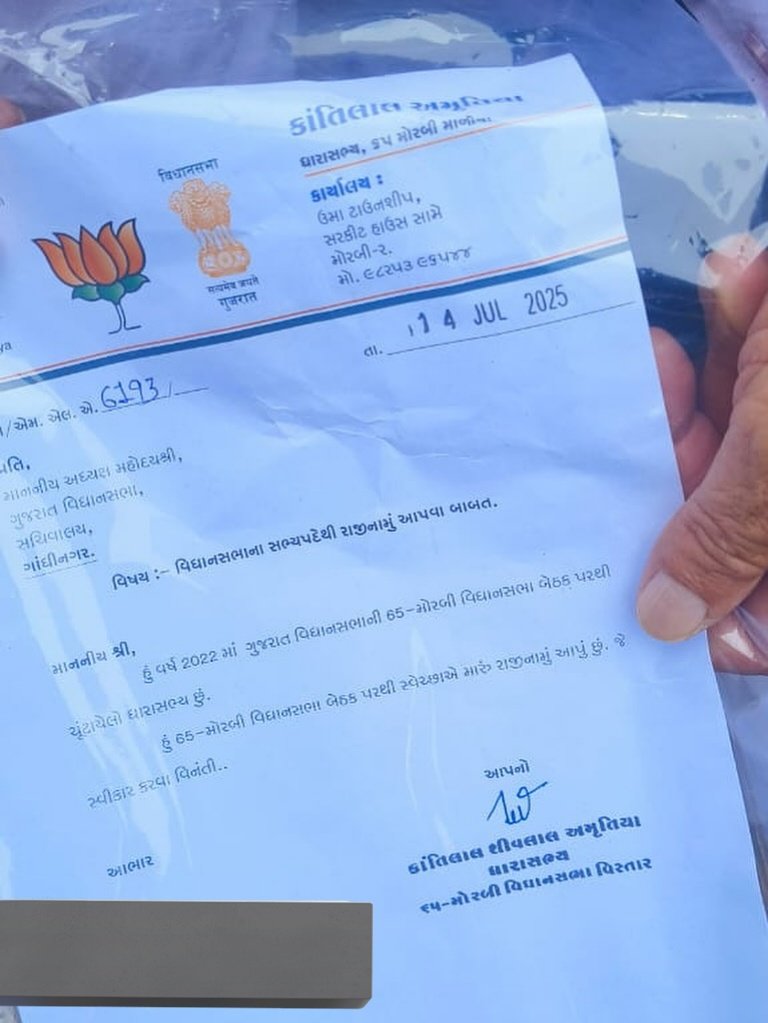 કાંતિલાલ અમૃતિયા
ધારાસભ્ય, ૬૫ મોરબી માળીયા
કાર્યાલય :
ઉમા ટાઉનશીપ,
સરકીટ હાઉસ સામે
મોરબી-૨.
મો. ૯૮૨૫૩ ૯૬૫૪૪
વિધાનસભા
सत्यमेव जयते
ગુજરાત
ya
તા. 14 JUL 2025
/એમ. એલ. એ. 6193/
માનનીય અધ્યક્ષ મહોદયશ્રી,
ગુજરાત વિધાનસભા,
સચિવાલય,
ગાંધીનગર.
વિષય :- વિધાનસભાના સભ્યપદેથી રાજીનામું આપવા બાબત.
માનનીય શ્રી,
હું વર્ષ 2022 માં ગુજરાત વિધાનસભાની 65-મોરબી વિધાનસભા બેઠક પરથી
ચૂંટાયેલો ધારાસભ્ય છું.
હું 65-મોરબી વિધાનસભા બેઠક પરથી સ્વેચ્છાએ મારું રાજીનામું આપું છું. જે
સ્વીકાર કરવા વિનંતી..
આપનો
કાંતિલાલ શીવલાલ અમૃતિયા
ધારાસભ્ય
૬૫-મોરબી વિધાનસભા વિસ્તાર
આભાર